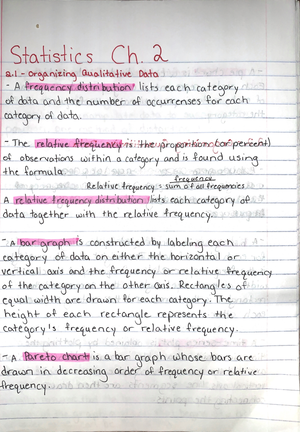 Statistics Ch. 2
2.1 - Organizing Qualitative Data
- A frequency distribution lists each category
of data and the number of occurrenses for each
category of data.
- The relative frequency is the proportion (or percent)
of observations within a category and is found using
the formula:
Relative frequency = frequency / sum of all frequencies
A relative frequency distribution lists each category of
data together with the relative frequency.
- A bar graph is constructed by labeling each
category of data on either the horizontal or
vertical axis and the frequency or relative frequency
of the category on the other axis. Rectangles of
equal width are drawn for each category. The
height of each rectangle represents the
category's frequency or relative frequency.
- A Pareto chart is a bar graph whose bars are
drawn in decreasing order of frequency or relative
frequency.